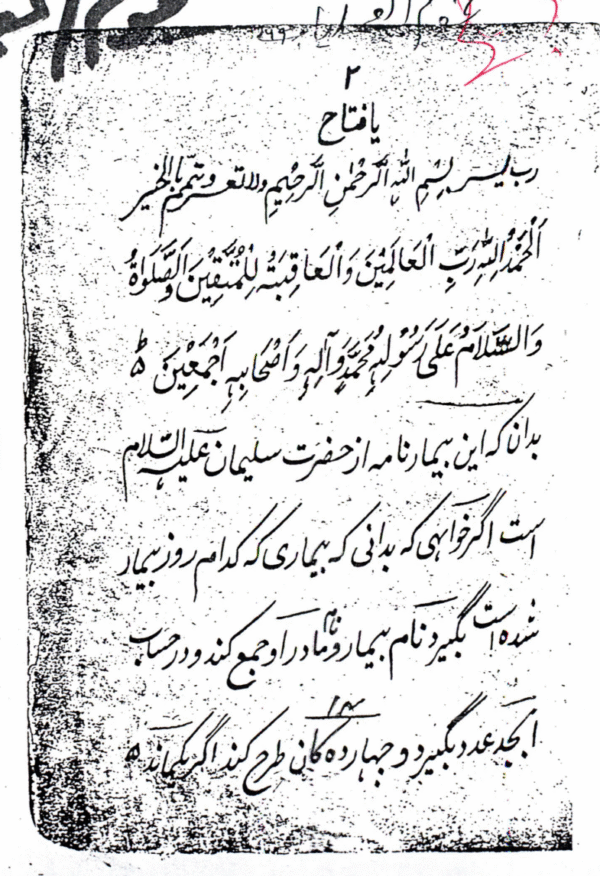 ۲
یا فتاح
رب یسر بِسْمِ اللهِ الرَّحْمٰنِ الرَّحِیْمِ ولا تعسر وتمم بالخیر
اَلْحَمْدُ لِلّٰهِ رَبِّ الْعَالَمِیْنَ وَالْعَاقِبَتُه لِلْمُتَّقِیْنَ وَالصَّلَوٰةُ
وَالسَّلَامُ عَلَی رَسُوْلِهِ مُحَمَّدٍ وَآلِهِ وَاَصْحَابِهِ اَجْمَعِیْنَ ط
بدانکه این بیمارنامه از حضرت سلیمان عَلَیْهِ السَّلام
است اگر خواهی که بدانی که بیماری که کدام روز بیمار
شده است بگیرد نام بیمار و نام مادر او جمع کند و در حساب
ابجد عدد بگیرد و چهارده کان طرح کند اگر یکماند ۵